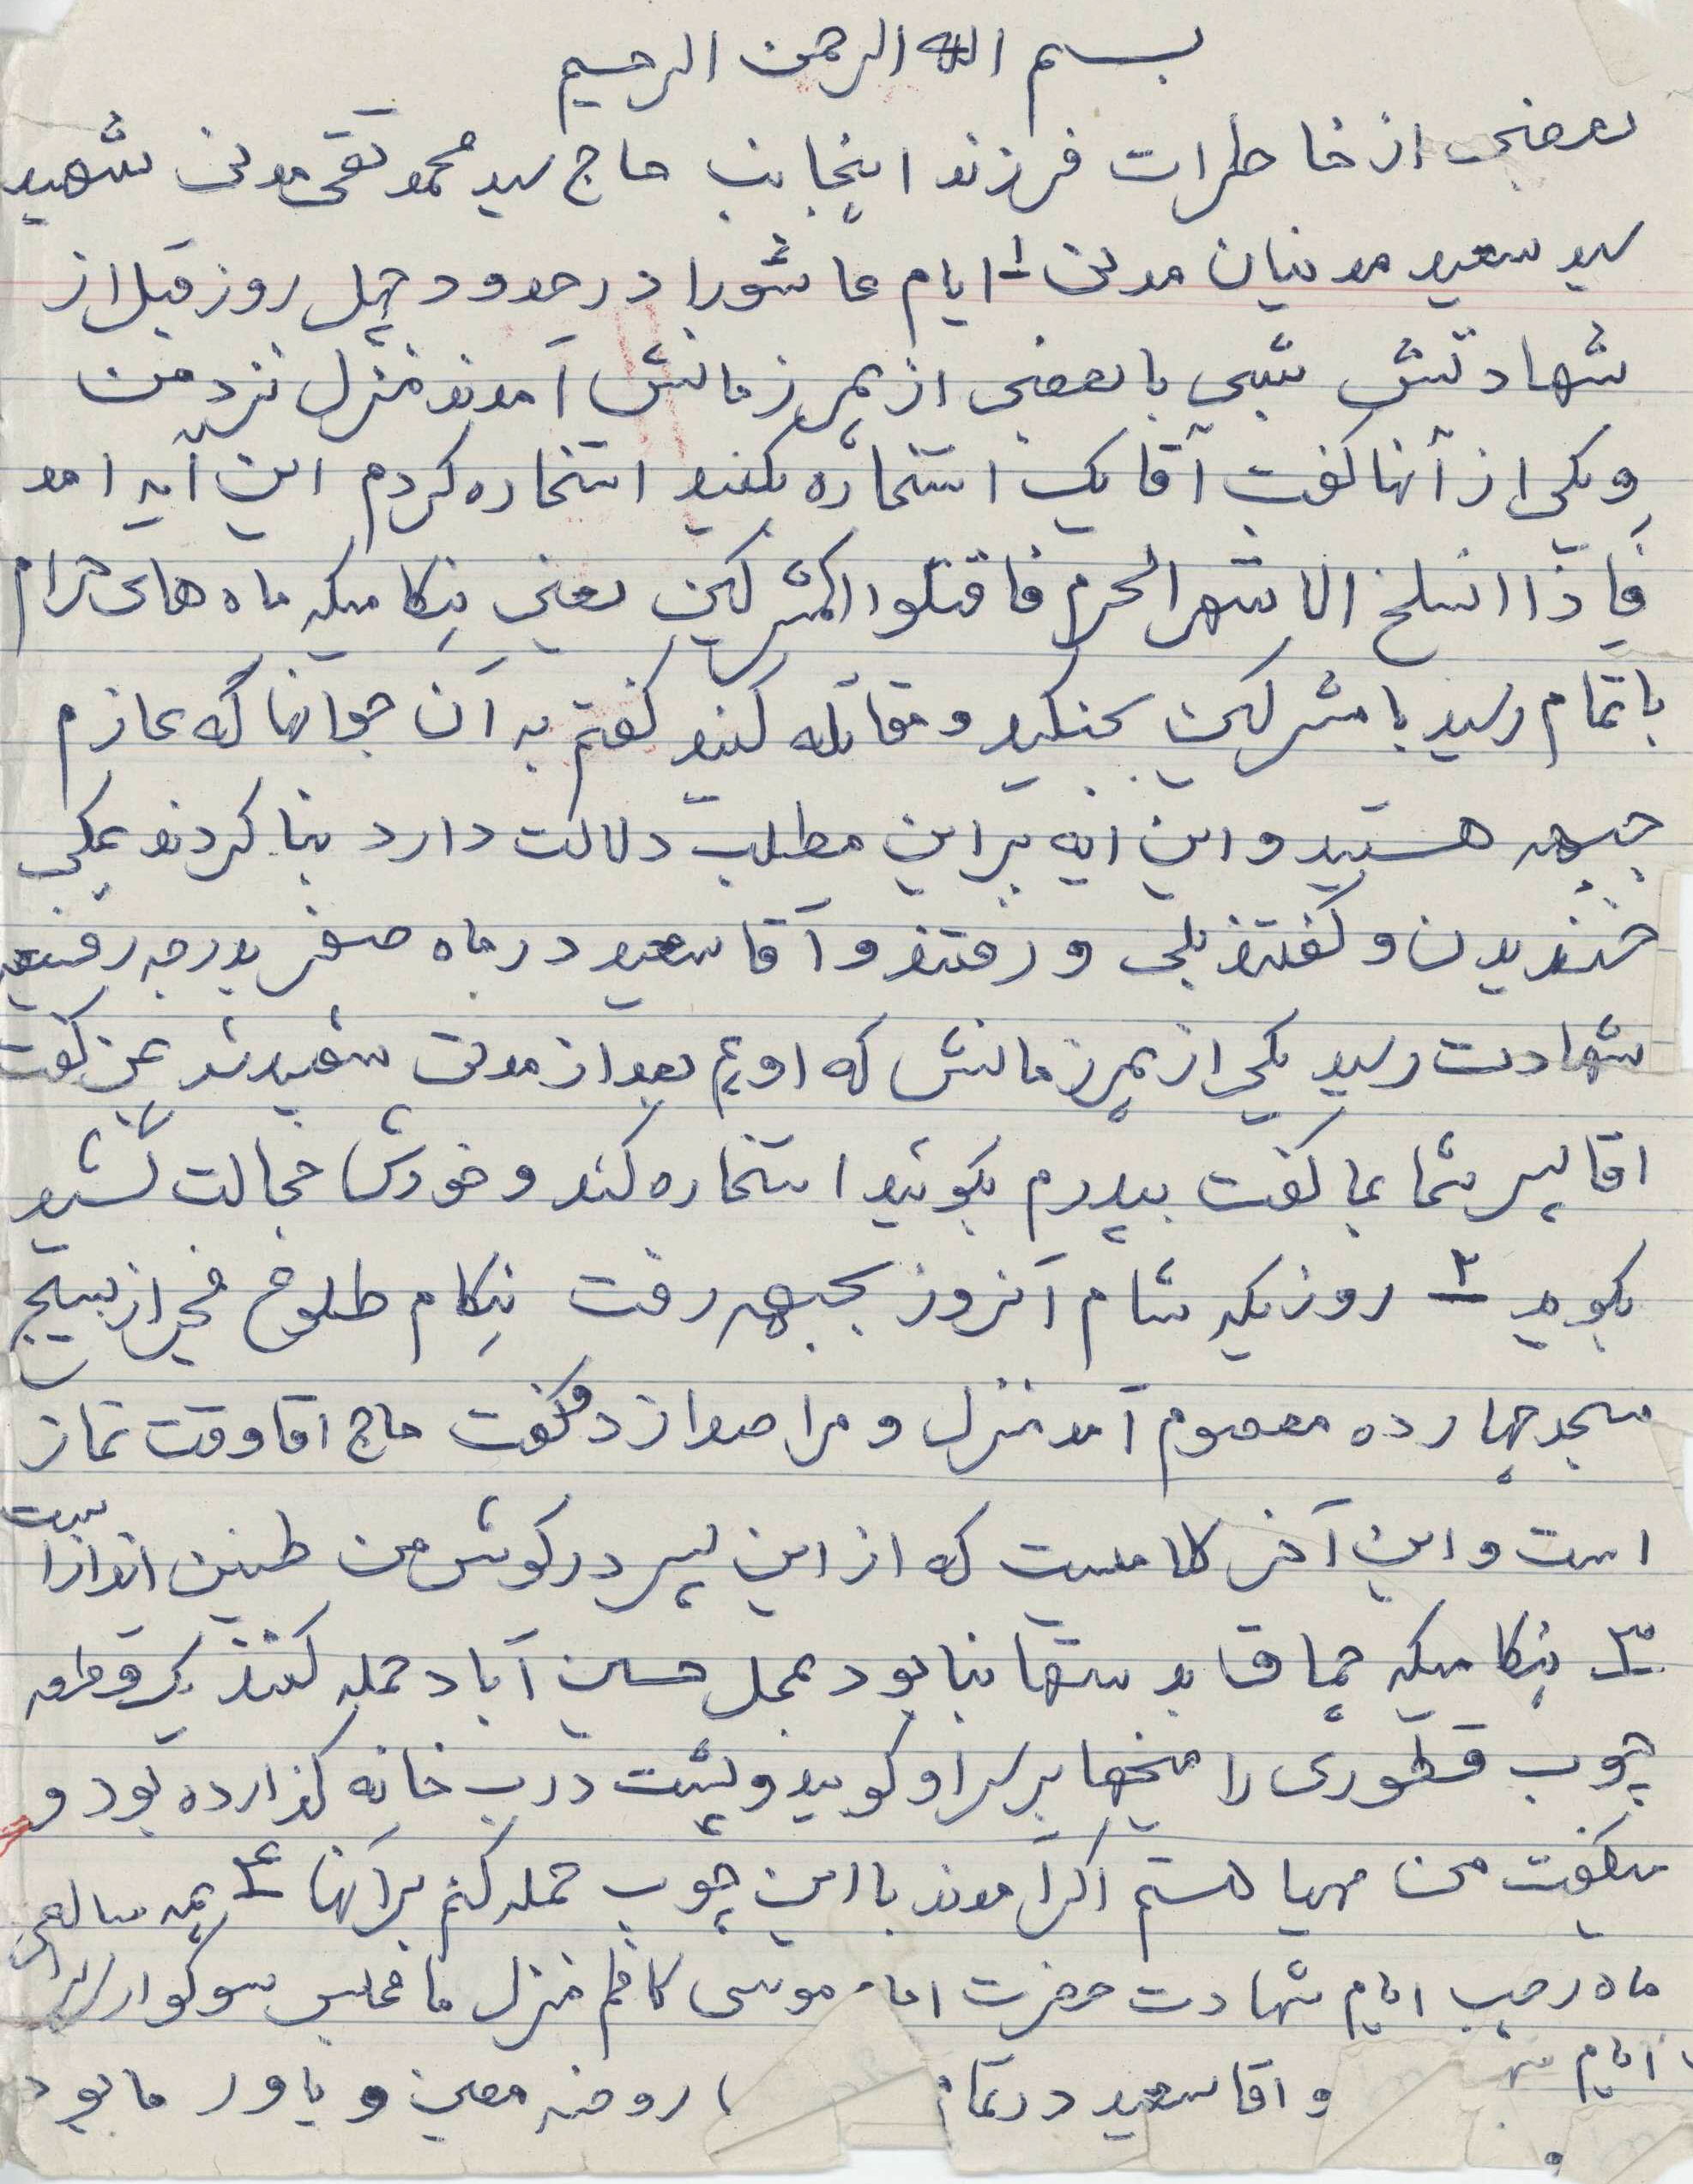 بسم الله الرحمن الرحیم
بعضی از خاطرات فرزند اینجانب حاج سید محمد تقی مدنی شهید
سید سعید مدنیان مدنی ۱- ایام عاشورا در حدود چهل روز قبل از
شهادتش شبی با بعضی از همرزمانش آمدند منزل نزد من
و یکی از آنها گفت آقا یک استخاره بکنید استخاره کردم این آیه امد
فاذا انسلخ الاشهر الحرم فاقتلوا المشرکین یعنی هنگامیکه ماه های حرام
باتمام رسید با مشرکین بجنگید و مقاتله کنید گفتم به آن جوانها که عازم
جبهه هستید و این ایه براین مطلب دلالت دارد بنا کردند همگی
خندیدن و گفتند بلی و رفتند و آقا سعید در ماه صفر بدرجه رفیعه
شهادت رسید یکی از همرزمانش که او هم بعد از مدتی شهید شد بمن گفت
اقا پسر شما بما گفت بپدرم بگوئید استخاره کند و خودش خجالت کشید
بگوید ۲- روزیکه شام آنروز بجبهه رفت هنگام طلوع فجر از بسیج
مسجد چهارده معصوم آمد منزل و مرا صدا زد و گفت حاج اقا وقت نماز
است و این آخر کلامیست که از این پسر در گوش من طنین انداز است
۳- هنگامیکه چماق بدستها بنا بود بمحل حسین آباد حمله کنند یک قطعه
چوب قطوری را میخها بر سر او کوبید و پشت درب خانه گذارده بود و
میگفت من مهیا هستم اگر آمدند با این چوب حمله کنم برآنها ۴- همه ساله
ماه رجب ایام شهادت حضرت امام موسی کاظم منزل ما مجلس سوگواری
ایام
و اقا سعید در تمام روضه معین و یاور ما بود
و